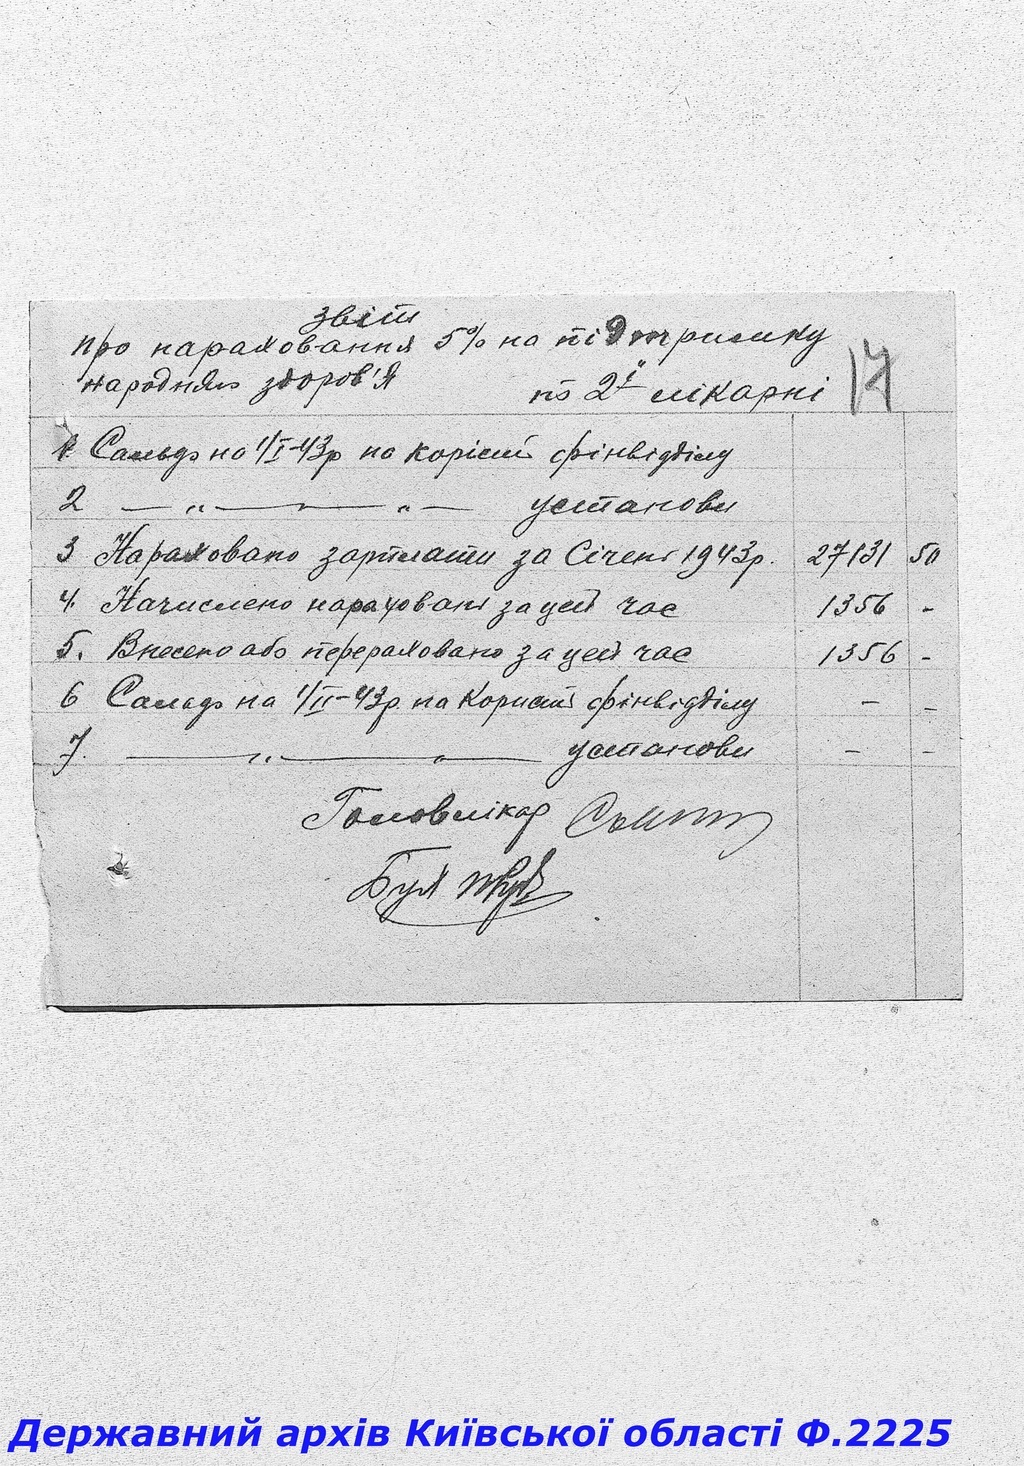 Звіт
про нараховання 5% на підтримку
народнього здоров'я по 2й лікарні
17
1. Сальдо на 1/I-43р на корість фінвідділу
2 — „ — „ — установи
3 Нараховано зарплати за Січень 1943р. 27131 50
4. Начислено нараховані за цей час 1356 -
5. Внесено або перераховано за цей час 1356 -
6 Сальдо на 1/II-43р на користь фінвідділу - -
7. — „ — „ — установи - -
Головлікар
Бух
Державний архів Київської області Ф.2225